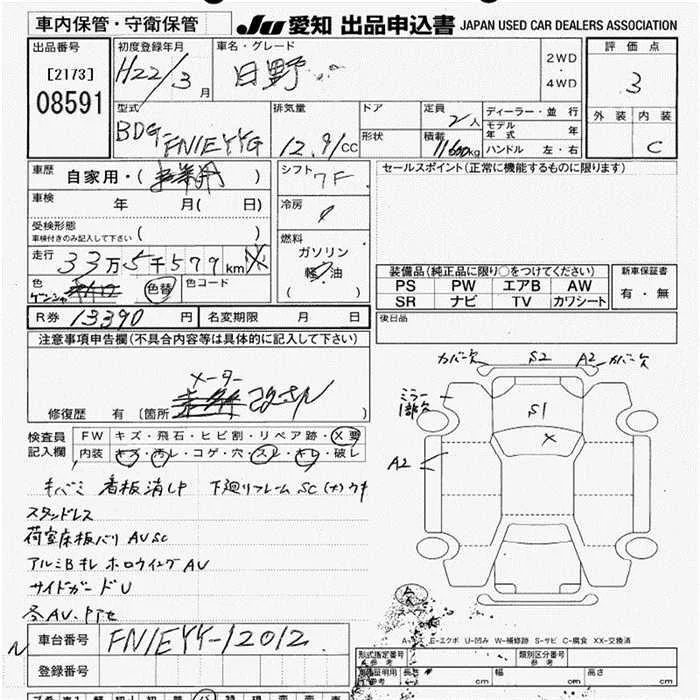 車内保管・守衛保管
JU 愛知 出品申込書 JAPAN USED CAR DEALERS ASSOCIATION
出品番号
[2173]
08591
初度登録年月
H22/3月
車名・グレード
日野
2WD
・
4WD
評価点
3
外装 内装
C
型式
BDG
FN1EYYG
排気量
12.91cc
ドア
形状
定員 2人
積載 11600kg
ディーラー・並行
モデル年式 年
ハンドル 左・右
車歴 自家用・( )
車検 年 月( 日)
受検形態
車検付きのみ記入して下さい ( )
走行 33万5千579km
色
色替
色コード
シフト 7F
冷房
燃料
ガソリン
軽油
( )
セールスポイント(正常に機能するものに限ります)
装備品(純正品に限り○をつけてください)
PS PW エアB AW
SR ナビ TV カワシート
新車保証書
有・無
後日品
R券 13390円 名変期限 月 日
注意事項申告欄(不具合内容等は具体的に記入して下さい)
メーター
改ざん
修復歴 有 (箇所 )
検査員
記入欄
FW キズ・飛石・ヒビ割・リペア跡・X要
内装 キズ・汚レ・コゲ・穴・スレ・キレ・破レ
キバミ 看板消し戸 下廻リフレーム SC(大)ウキ
スタンドレス
荷室床板バリ AV SC
アルミBキレ ホロウイング AV
サイドガード U
各AV
カバー欠 S2 A2 カバー欠
ミラー
1部欠
S1
X
A2
A-キズ E-エクボ U-凹み W-補修跡 S-サビ C-腐食 XX-交換済
車台番号 FN1EYY-12012
登録番号
形式指定番号
参考
類別区分番号
参考
長さ cm 幅 cm 高さ cm